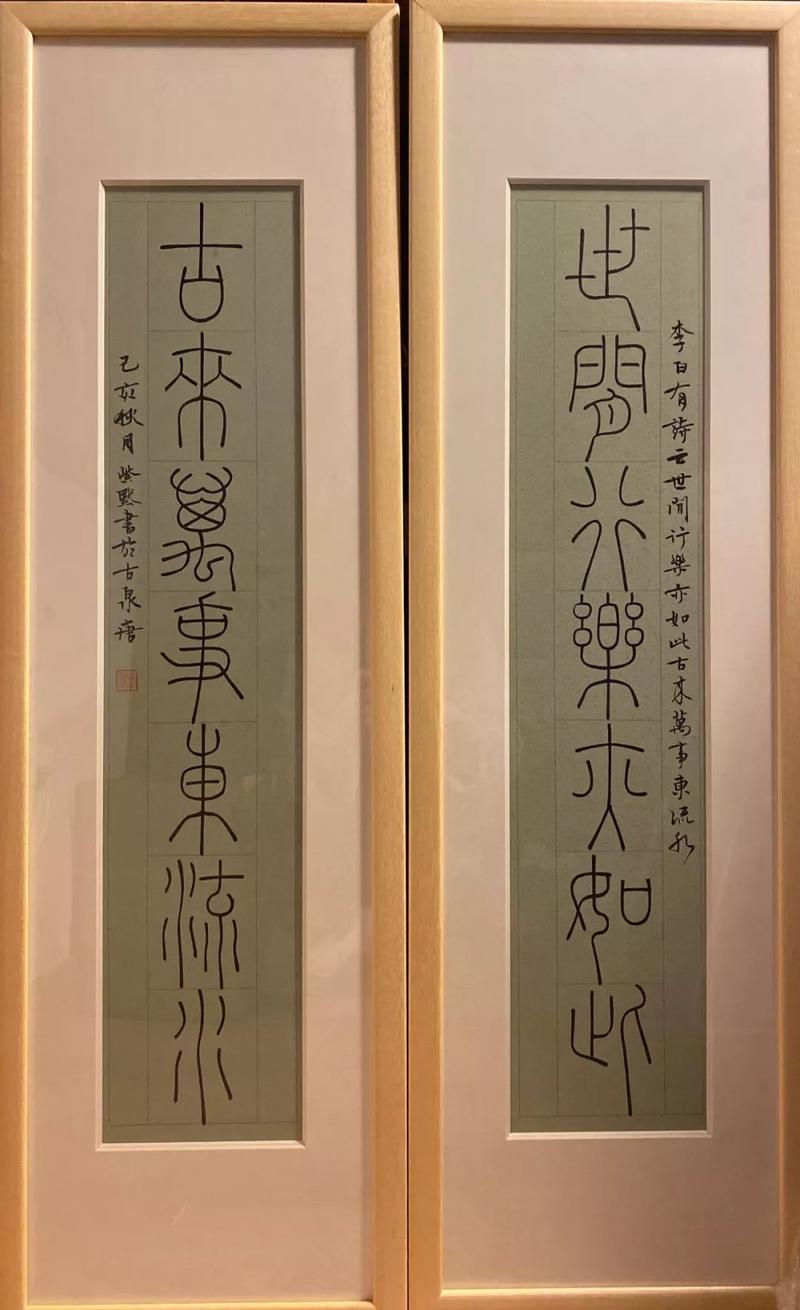 李白有詩云世間行樂亦如此古來萬事東流水
世閒行樂亦如此
古來萬事東流水
己亥秋月紫默書於古泉唐